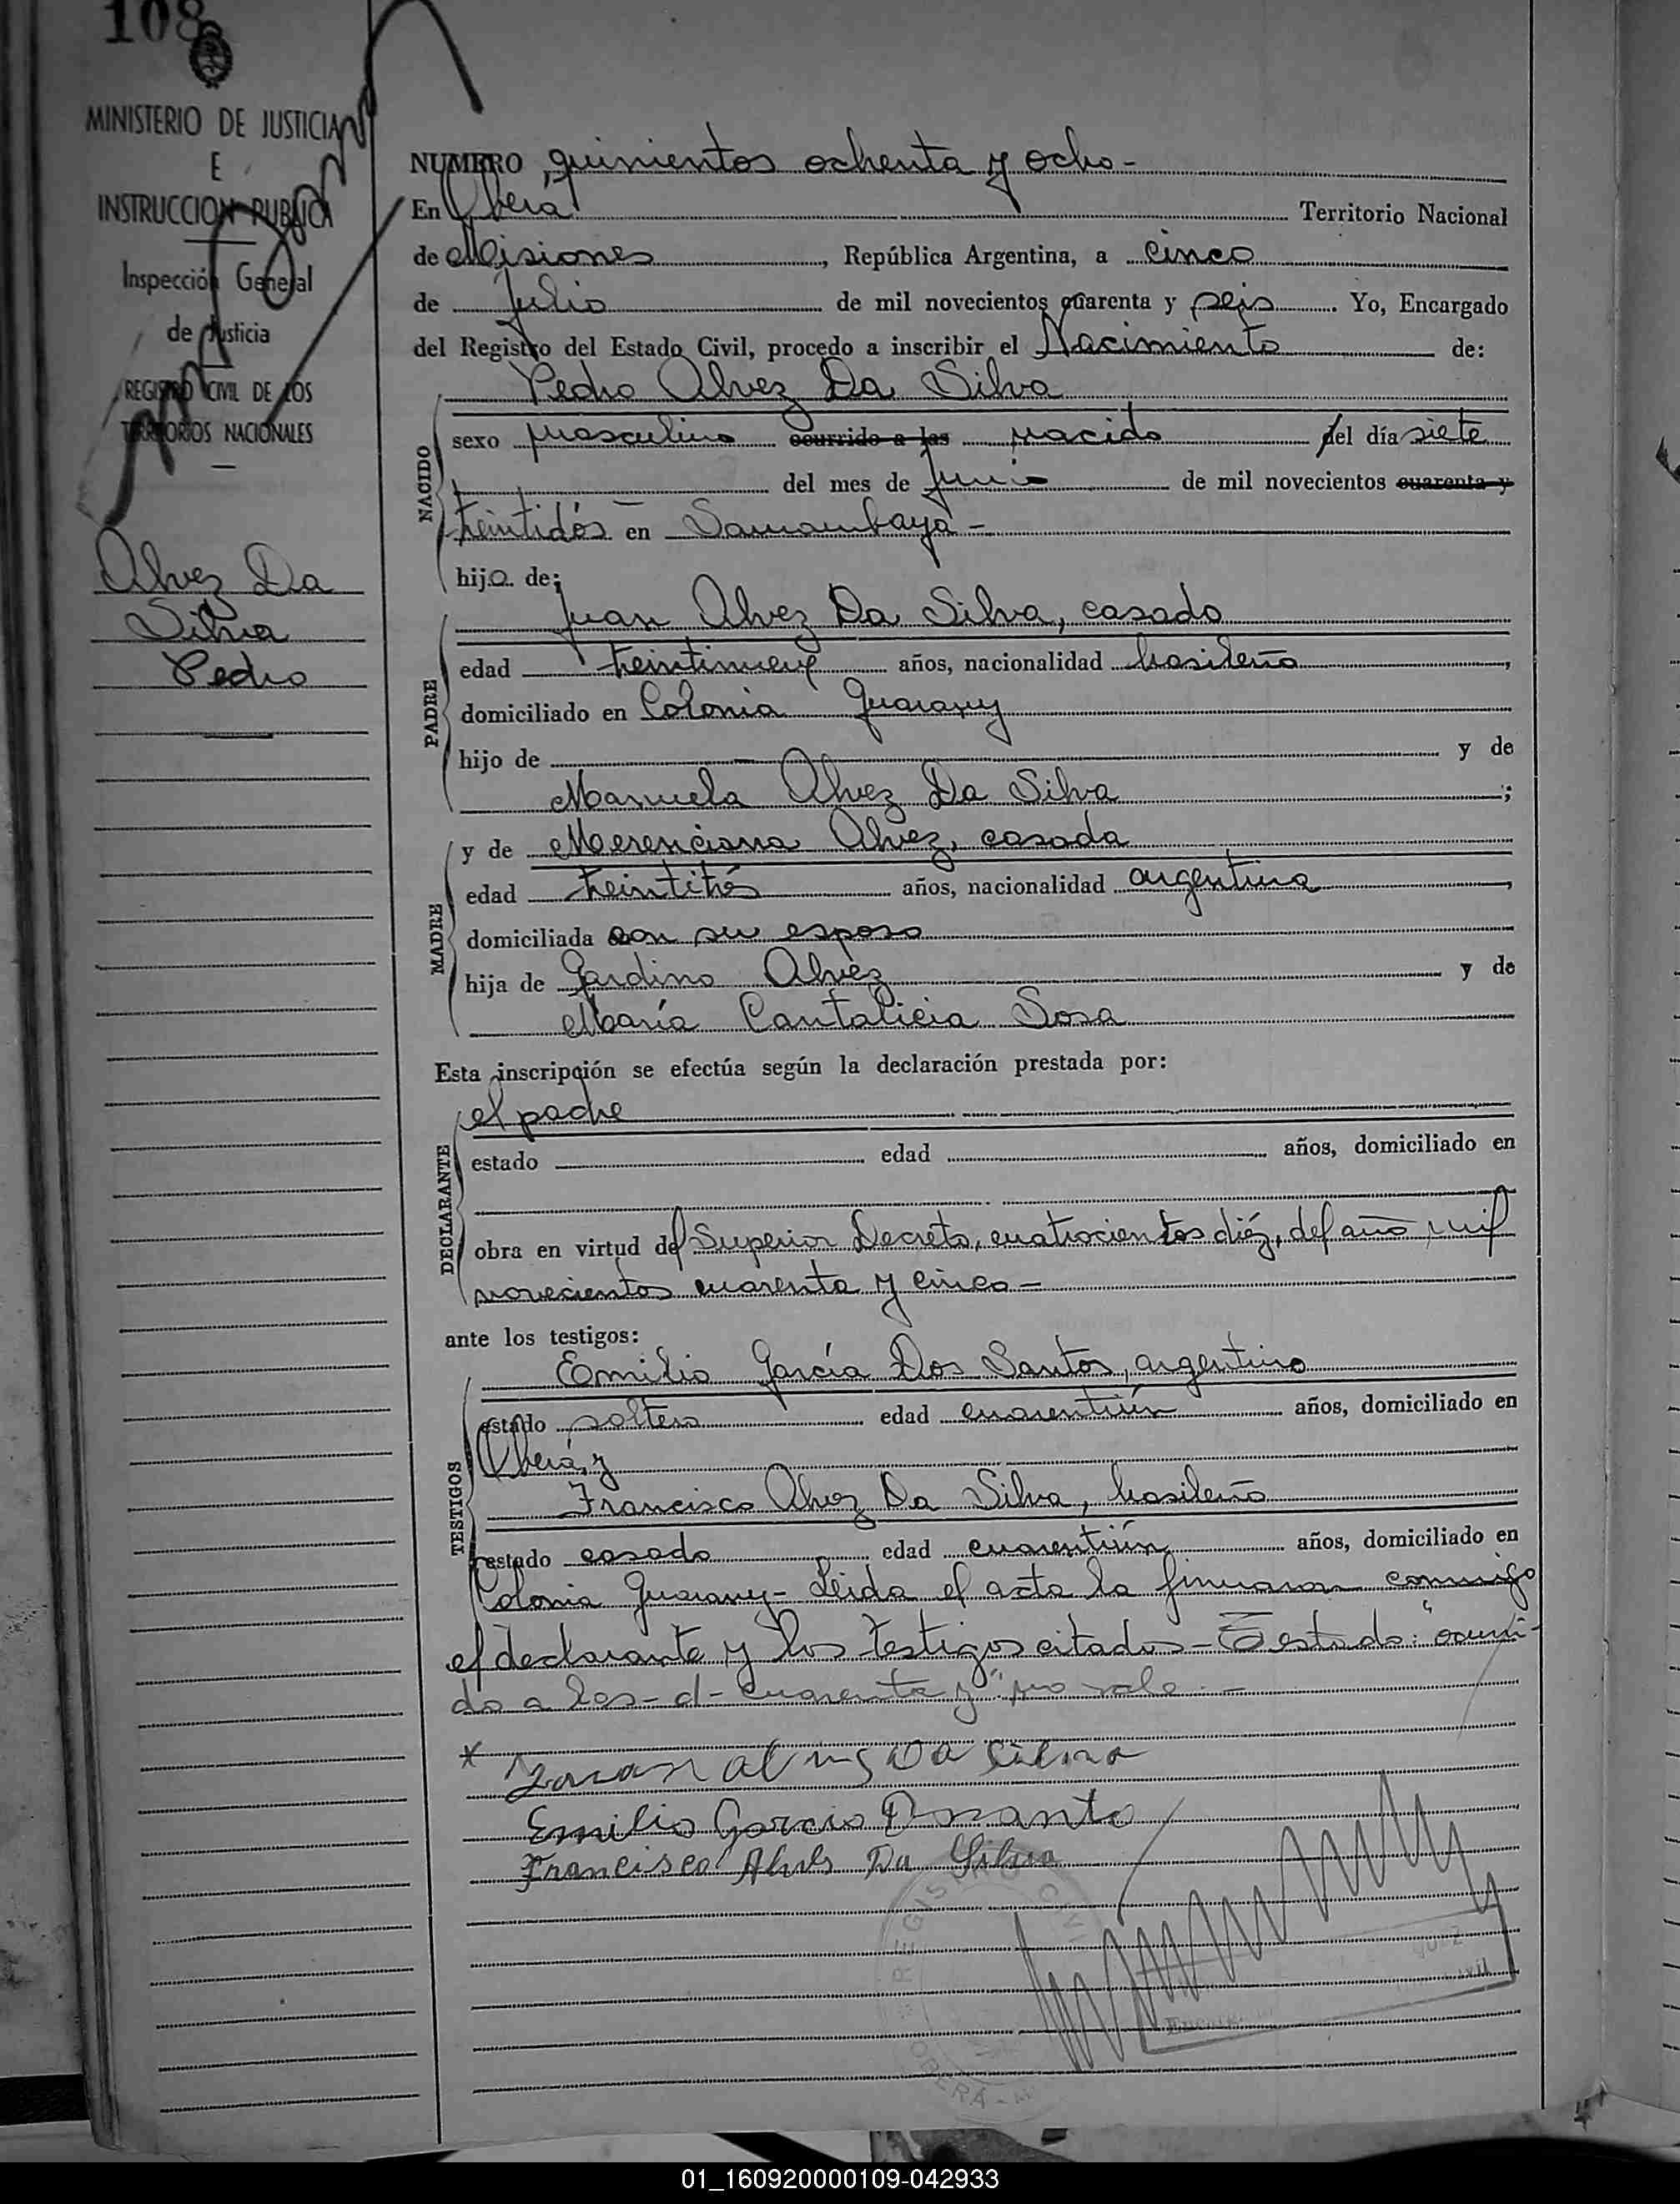 108
MINISTERIO DE JUSTICIA
E
INSTRUCCION PUBLICA
Inspección General
de Justicia
REGISTRO CIVIL DE LOS
TERRITORIOS NACIONALES
Alvez Da
Silva
Pedro
NUMERO quinientos ochenta y ocho -
En Oberá Territorio Nacional
de Misiones, República Argentina, a cinco
de Julio de mil novecientos cuarenta y seis. Yo, Encargado
del Registro del Estado Civil, procedo a inscribir el Nacimiento de:
Pedro Alvez Da Silva
NACIDO
sexo masculino ocurrido a las nacido del día siete
del mes de Junio de mil novecientos cuarenta y
treintidós en Samambaya -
hijo de:
PADRE
Juan Alvez Da Silva, casado
edad treintinueve años, nacionalidad brasileño,
domiciliado en Colonia Guarany
hijo de y de
Manuela Alvez Da Silva;
MADRE
y de Merenciana Alvez, casada
edad treintitrés años, nacionalidad argentina,
domiciliada con su esposo
hija de Gardino Alvez y de
María Cantalicia Sosa
Esta inscripción se efectúa según la declaración prestada por:
DECLARANTE
el padre
estado edad años, domiciliado en
obra en virtud del Superior Decreto, cuatrocientos diéz, del año mil
novecientos cuarenta y cinco -
ante los testigos:
TESTIGOS
Emilio García Dos Santos, argentino
estado soltero edad cuarentiún años, domiciliado en
Oberá, y
Francisco Alvez Da Silva, brasileño
estado casado edad cuarentiún años, domiciliado en
Colonia Guarany - Leida el acta la firmaron conmigo
el declarante y los testigos citados - Testado: "ocurri-
do a las - d - cuarenta y" no vale. -
Juan Da Silva
Emilio Garcia
Francisco Alves Da Silva
OBERÁ - M
01_160920000109-042933